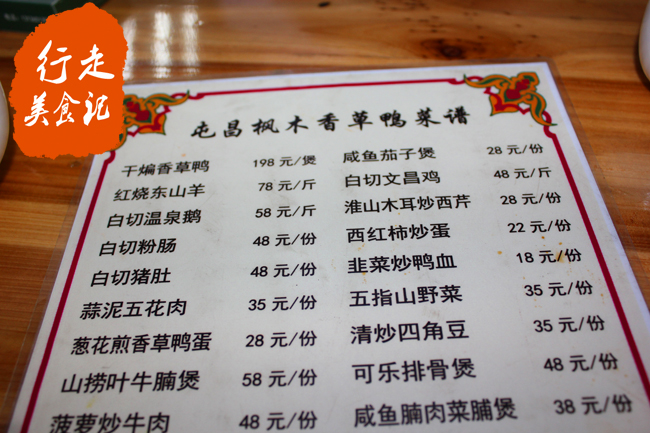 行走
美食记
屯昌枫木香草鸭菜谱
干煸香草鸭 198 元/煲
红烧东山羊 78 元/斤
白切温泉鹅 58 元/斤
白切粉肠 48 元/份
白切猪肚 48 元/份
蒜泥五花肉 35 元/份
葱花煎香草鸭蛋 28 元/份
山捞叶牛腩煲 58 元/份
菠萝炒牛肉 48 元/份
咸鱼茄子煲 28 元/份
白切文昌鸡 48 元/斤
淮山木耳炒西芹 28 元/份
西红柿炒蛋 22 元/份
韭菜炒鸭血 18 元/份
五指山野菜 35 元/份
清炒四角豆 35 元/份
可乐排骨煲 48 元/份
咸鱼腩肉菜脯煲 38 元/份